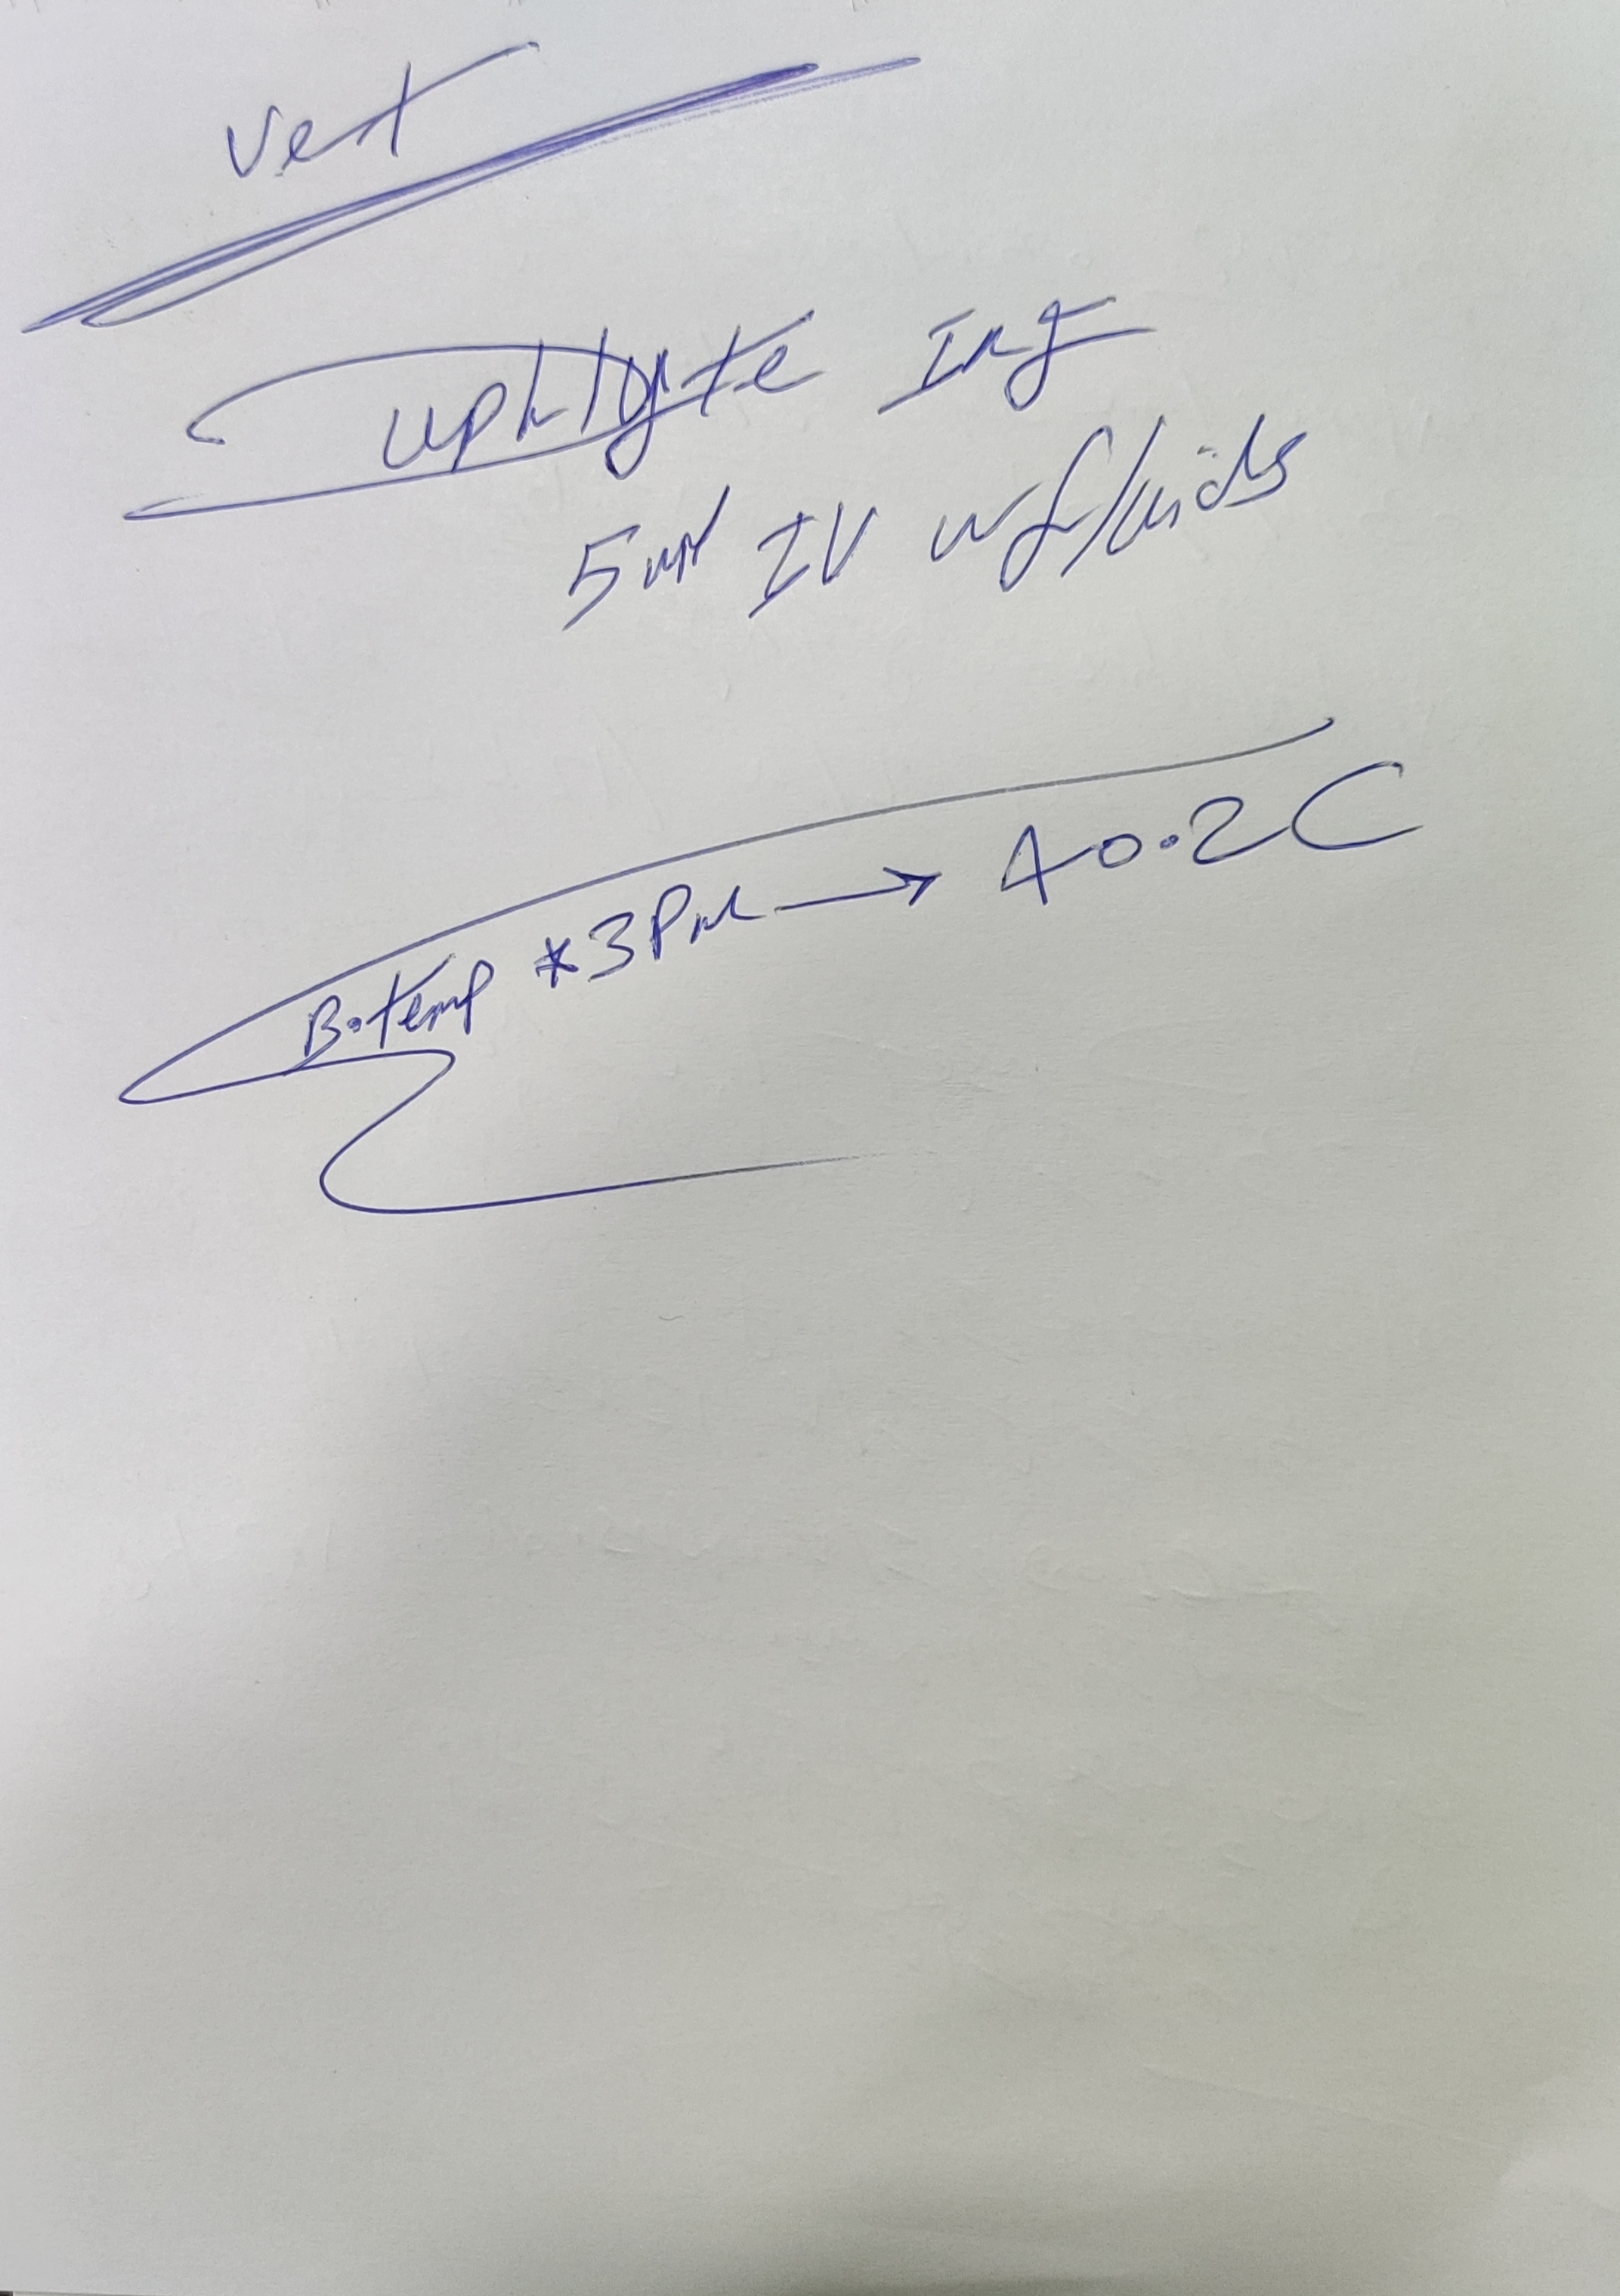 Vet
uphlyte Inj
5ml IV w fluids
B.temp *3Pm → 40.2C